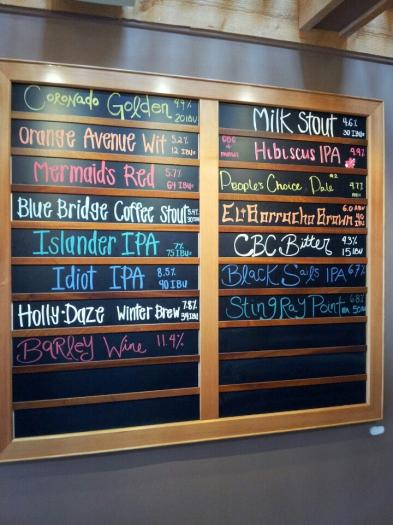 Coronado Golden 4.9% 20 IBU
Orange Avenue Wit 5.2% 12 IBUs
Mermaids Red 5.7% 64 IBUs
Blue Bridge Coffee Stout 5.4%
Islander IPA 7% 75 IBUs
Idiot IPA 8.5% 90 IBU
Holly-Daze Winter Brew 7.8% 34 IBU
Barley Wine 11.4%
Milk Stout 4.6% 30 IBUs
Hibiscus IPA
People's Choice Pale #2 4.7%
El Borracho Brown 6.0 ABV 40 IBU
CBC Bitter 4.3% 15 IBU
Black Sails IPA 6.7%
Sting Ray Point 6.8%